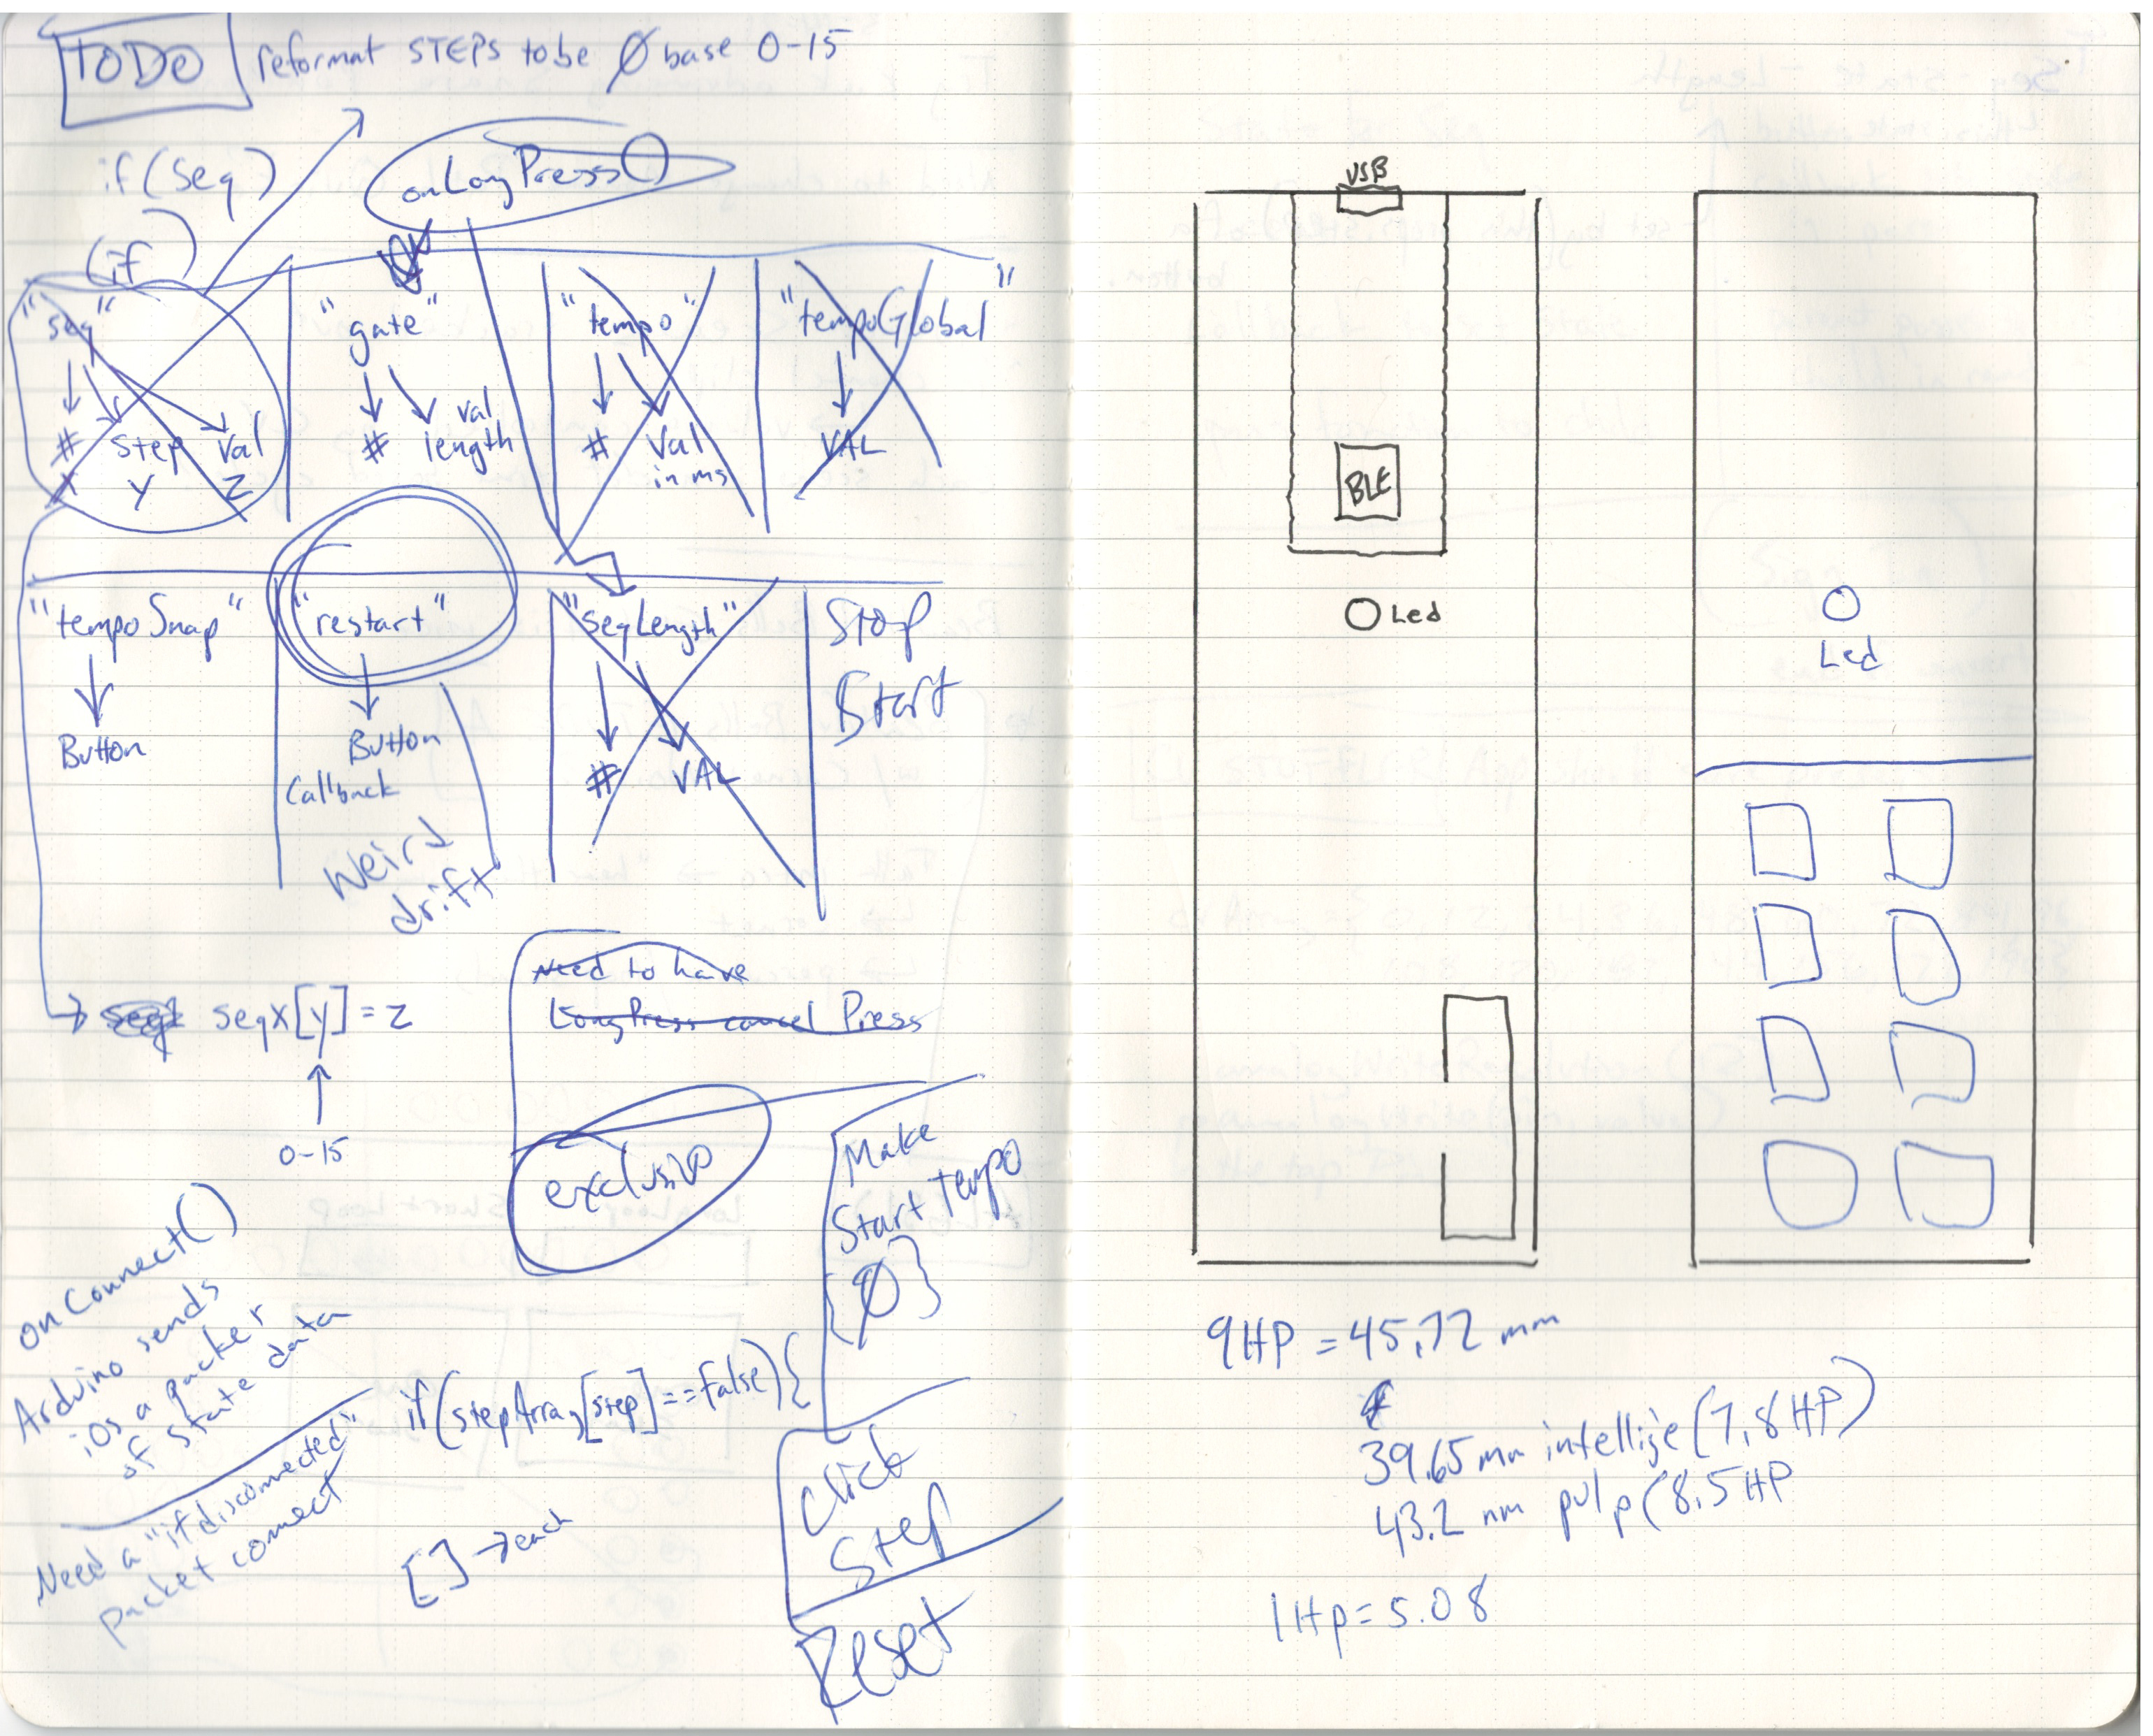 TODO
reformat STEPS to be Ø base 0-15
if(seq)
(if )
onLongPress()
"seq"
# step val
X Y Z
"gate"
# val
length
"tempo"
# val
in ms
"tempoGlobal"
VAL
"tempoSnap"
Button
"restart"
Button
Callback
Weird
drift
"seqLength"
# VAL
Stop
Start
seqX[y]=z
0-15
Need to have
LongPress cancel Press
exclusive
Make
Start tempo
{Ø}
onConnect()
Arduino sends
iOs a packet
of state data
Need a "ifdisconnected"
packet connect
if(stepArray[step]==false){
[]→each
Click
Step
Reset
USB
BLE
Led
Led
9HP = 45,72 mm
39.65 mm intellije (7,8HP)
43.2 mm pulp (8.5HP
1Hp=5.08